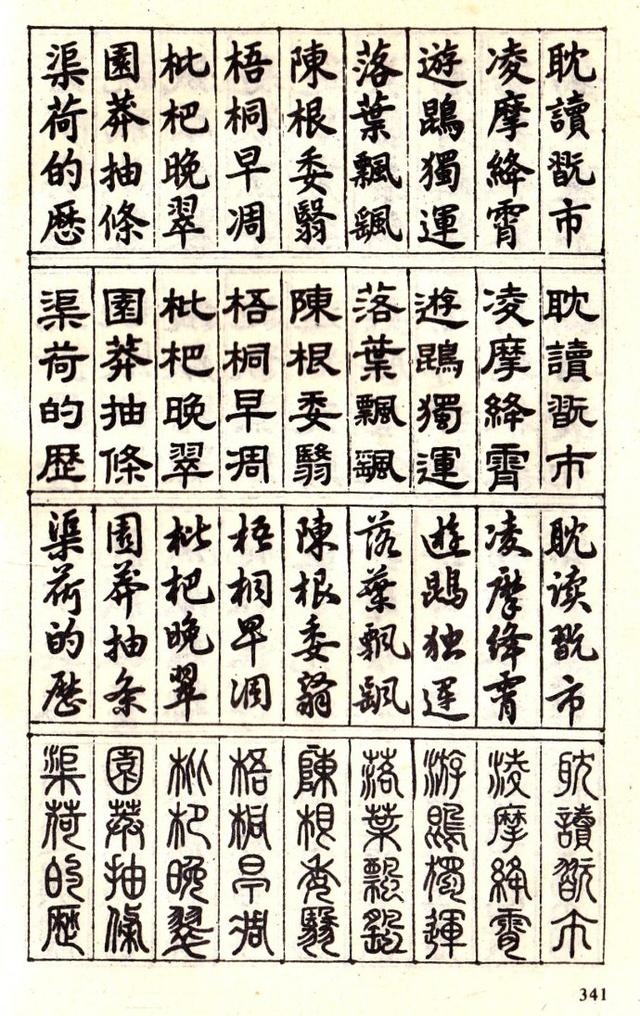 渠荷的歷
園莽抽條
枇杷晚翠
梧桐早凋
陳根委翳
落葉飄颻
遊鵾獨運
凌摩絳霄
耽讀翫市
渠荷的歷
園莽抽條
枇杷晚翠
梧桐早凋
陳根委翳
落葉飄颻
遊鵾獨運
凌摩絳霄
耽讀翫市
渠荷的歷
園莽抽条
枇杷晚翠
梧桐早凋
陳根委翳
落葉飄颻
遊鵾独運
凌摩絳霄
耽读翫市
渠荷的歷
園莽抽條
枇杷晚翠
梧桐早凋
陳根委翳
落葉飄颻
游鵾獨運
淩摩絳霄
耽讀翫市
341